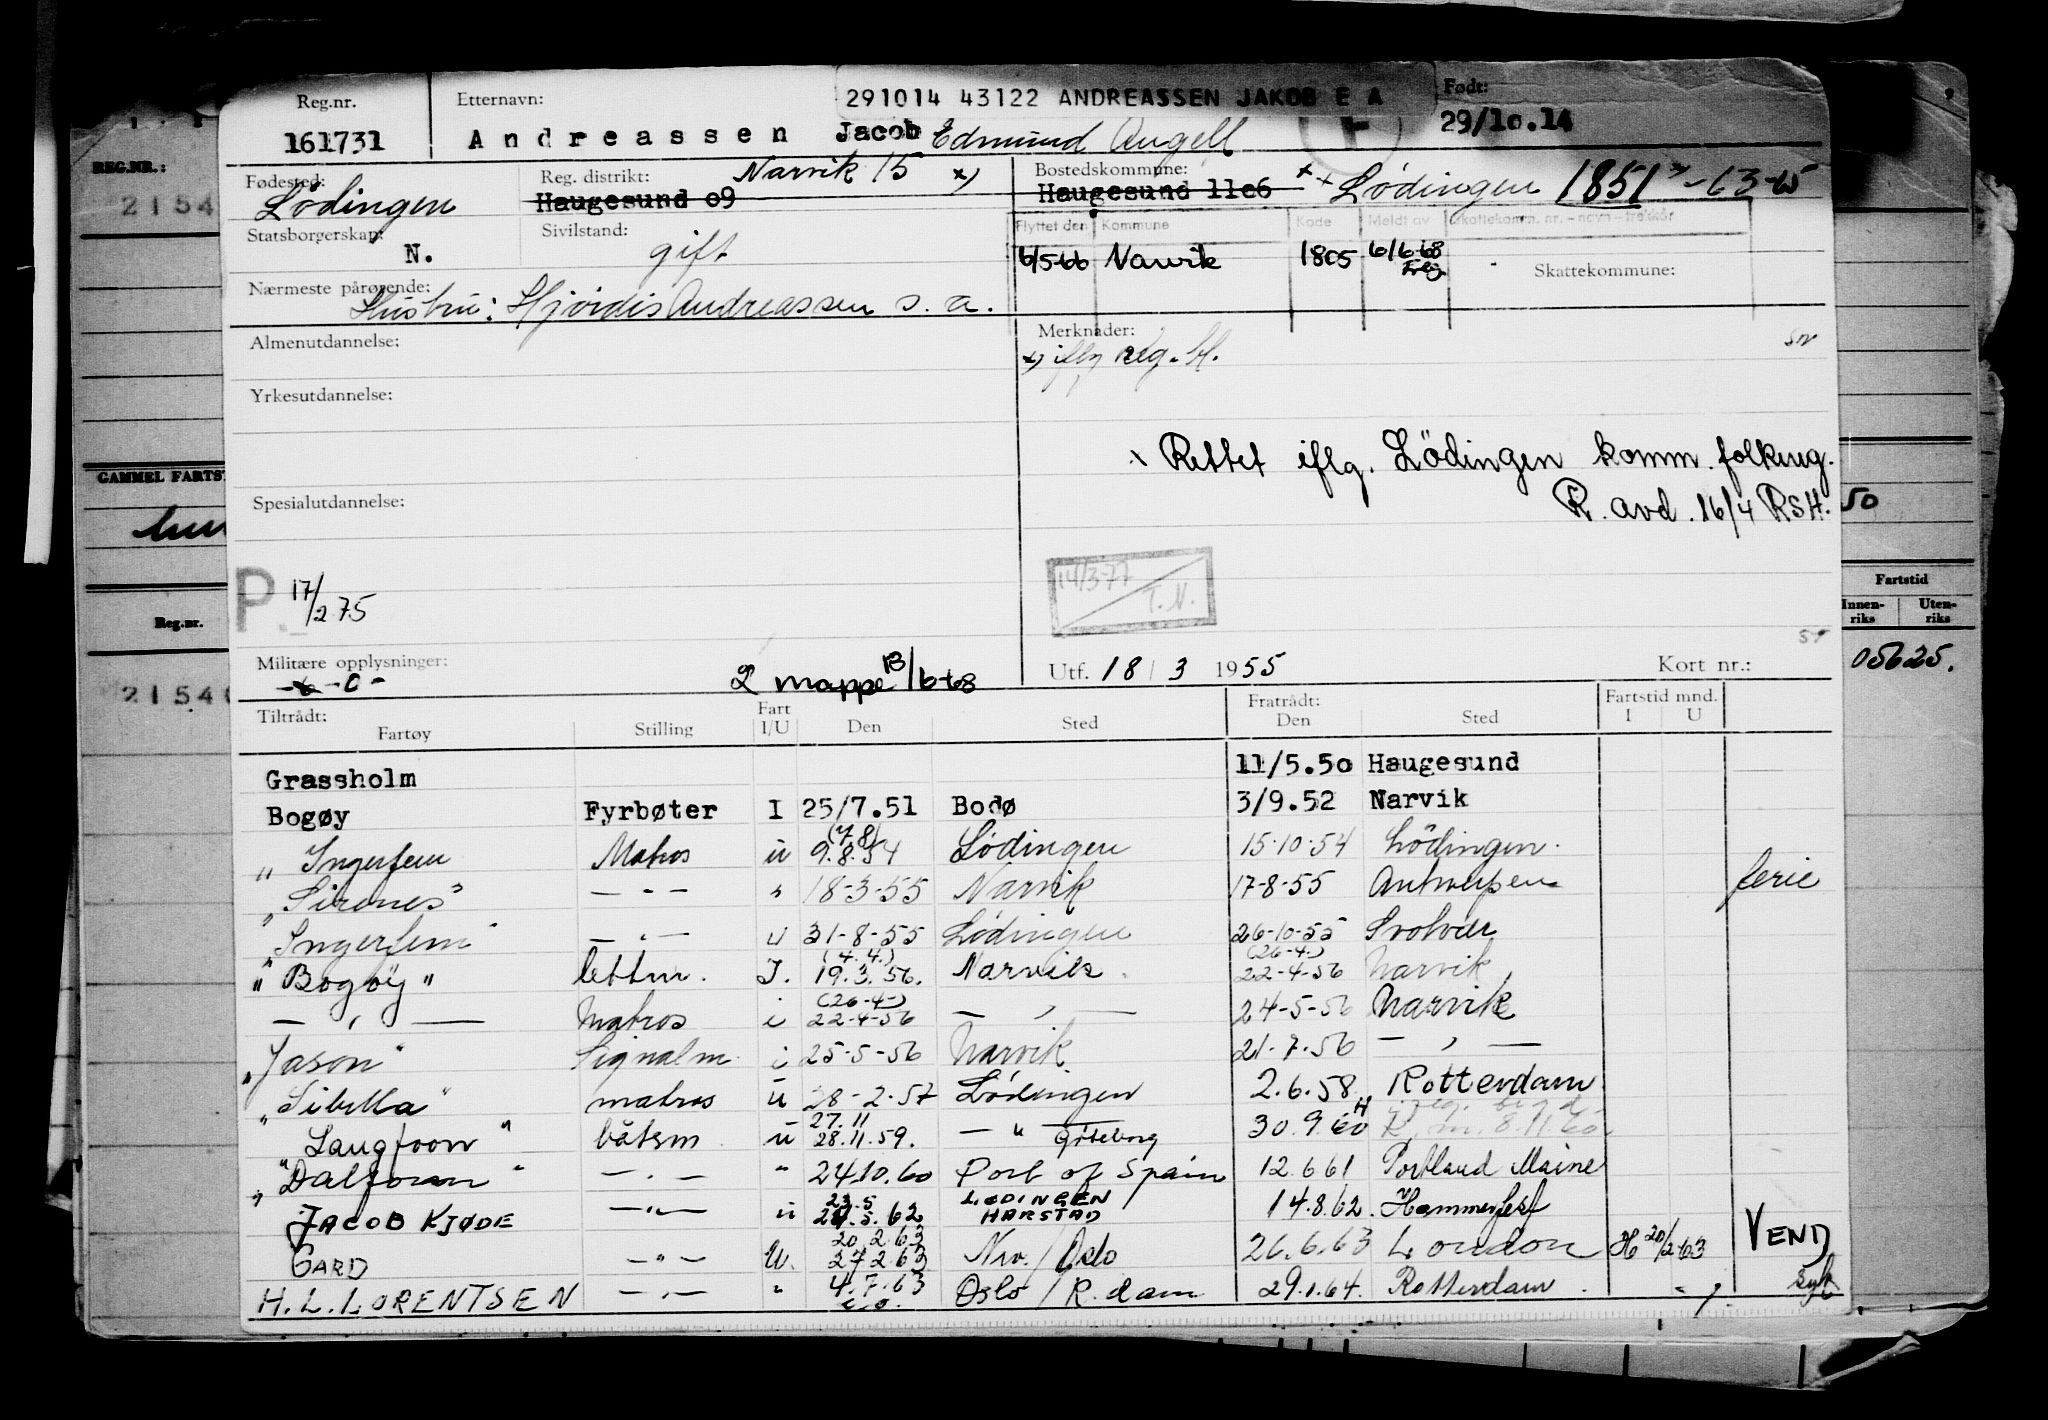 Reg.nr. Etternavn: 291014 43122 ANDREASSEN JAKOB E A Født:
161731 Andreassen Jacob Edmund Angell 29/10.14
REG.NR.:
Fødested: Reg. distrikt: Narvik 15 x) Bostedskommune: x Lödingen 1851
2154 Lödingen Haugesund 09 Haugesund 11c6
Statsborgerskap: Sivilstand: Flyttet den Kommune Kode Meldt av Skattekomm. nr. - navn - fraskår
N. gift 6/5-66 Narvik 1805 6/6-68
Skattekommune:
Nærmeste pårørende:
Hustru: Hjördis Andreassen s. a.
Almenutdannelse: Merknader:
x) iflg reg. bl.
Yrkesutdannelse:
x Rettet iflg. Lödingen komm. folkereg.
GAMMEL FARTS
Spesialutdannelse: R. avd. 16/4 RSH. 50
P 17/2 75 14/3-77 T.N.
Fartstid
Innenriks Utenriks
Reg.nr.
Militære opplysninger: Utf. 18 / 3 1955 Kort nr.: 05625.
-0- 2 mappe 13/6-68
2154
Tiltrådt: Fart Fratrådt: Fartstid mnd.
Fartøy Stilling I/U Den Sted Den Sted I U
Grassholm 11/5.50 Haugesund
Bogøy Fyrbøter I 25/7.51 Bodø 3/9.52 Narvik
(7.8)
" Ingerfem Matros u 9.8.54 Lödingen 15.10.54 Lödingen.
"Sirenes" — " — " 18-3-55 Narvik 17-8-55 Antwerpen ferie
"Ingerfem" — " — u 31-8-55 Lödingen 26-10-55 Svolvær
(4.4.) (26-4.)
"Bogöy" lettm. I. 19.3.56. Narvik. 22-4-56 Narvik
(26-4-)
— " — Matros i 22-4-56 — " — 24-5-56 Narvik
"Jason" Signalm. i 25-5-56 Narvik 21.7.56 — " —
"Sibella" matros u 28-2-57 Lödingen 2.6.58 Rotterdam
27.11
Langfoon" båtsm u 28.11.59. — " Göteborg 30.9 60
"Dalfonn" — " — " 24.10.60 Port of Spain 12.6 61 Portland Maine
23.5 LØDINGEN
JACOB KJØDE — " — u 24.5.62 HARSTAD 14.8.62. Hammerfest
20.2.63
GARD — " — U. 27.2.63 Nrv. / Oslo 26.6.63 London H 20/2-63 VEND
H. L. LORENTSEN — " — " 4.7.63 Oslo / R.dam 29.1.64. Rotterdam syk